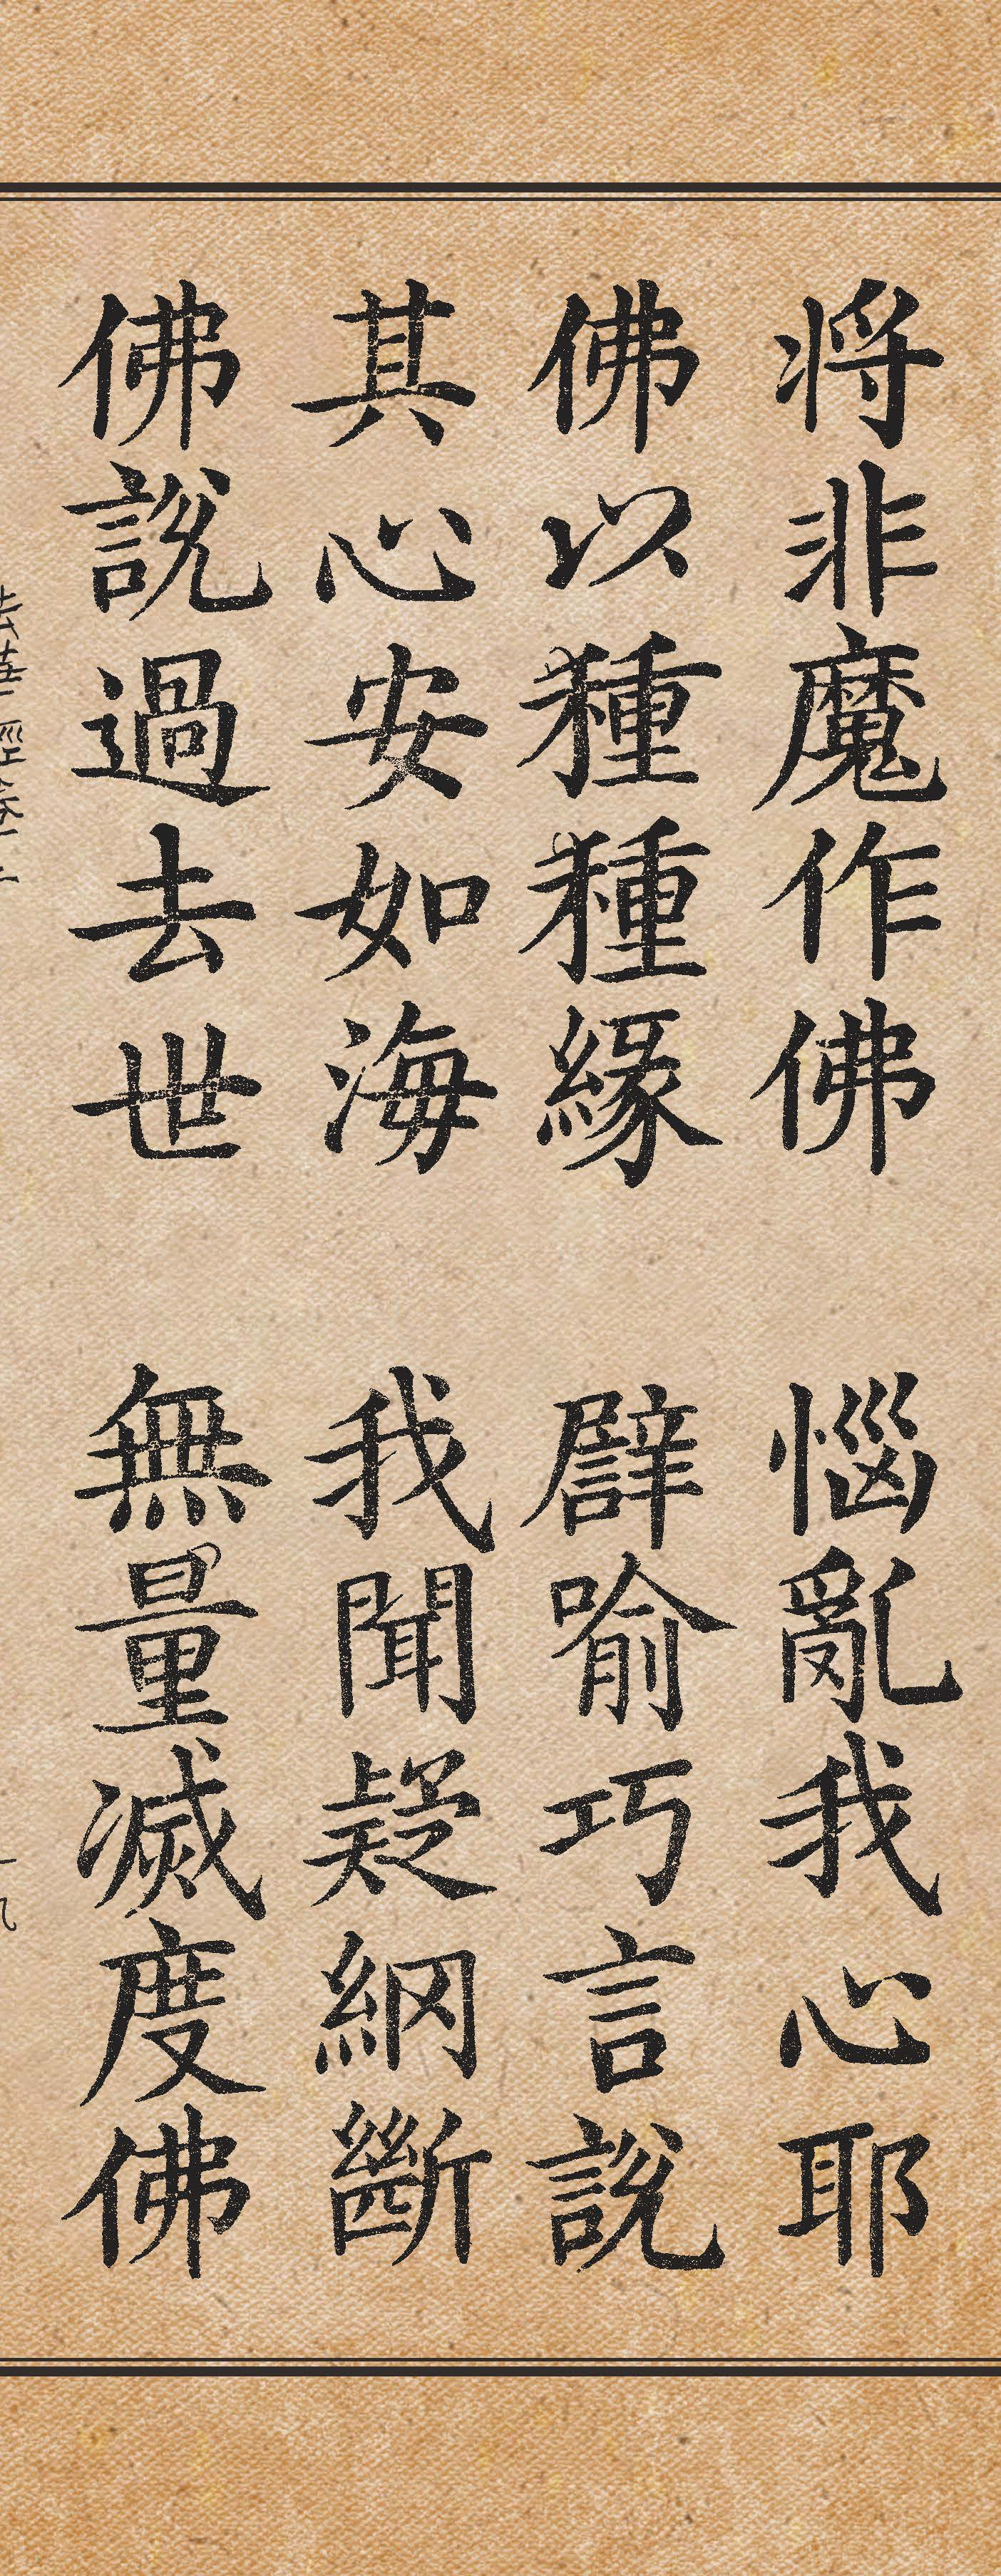 将非魔作佛　惱亂我心耶
佛以種種緣　譬喻巧言說
其心安如海　我聞疑網斷
佛說過去世　無量滅度佛